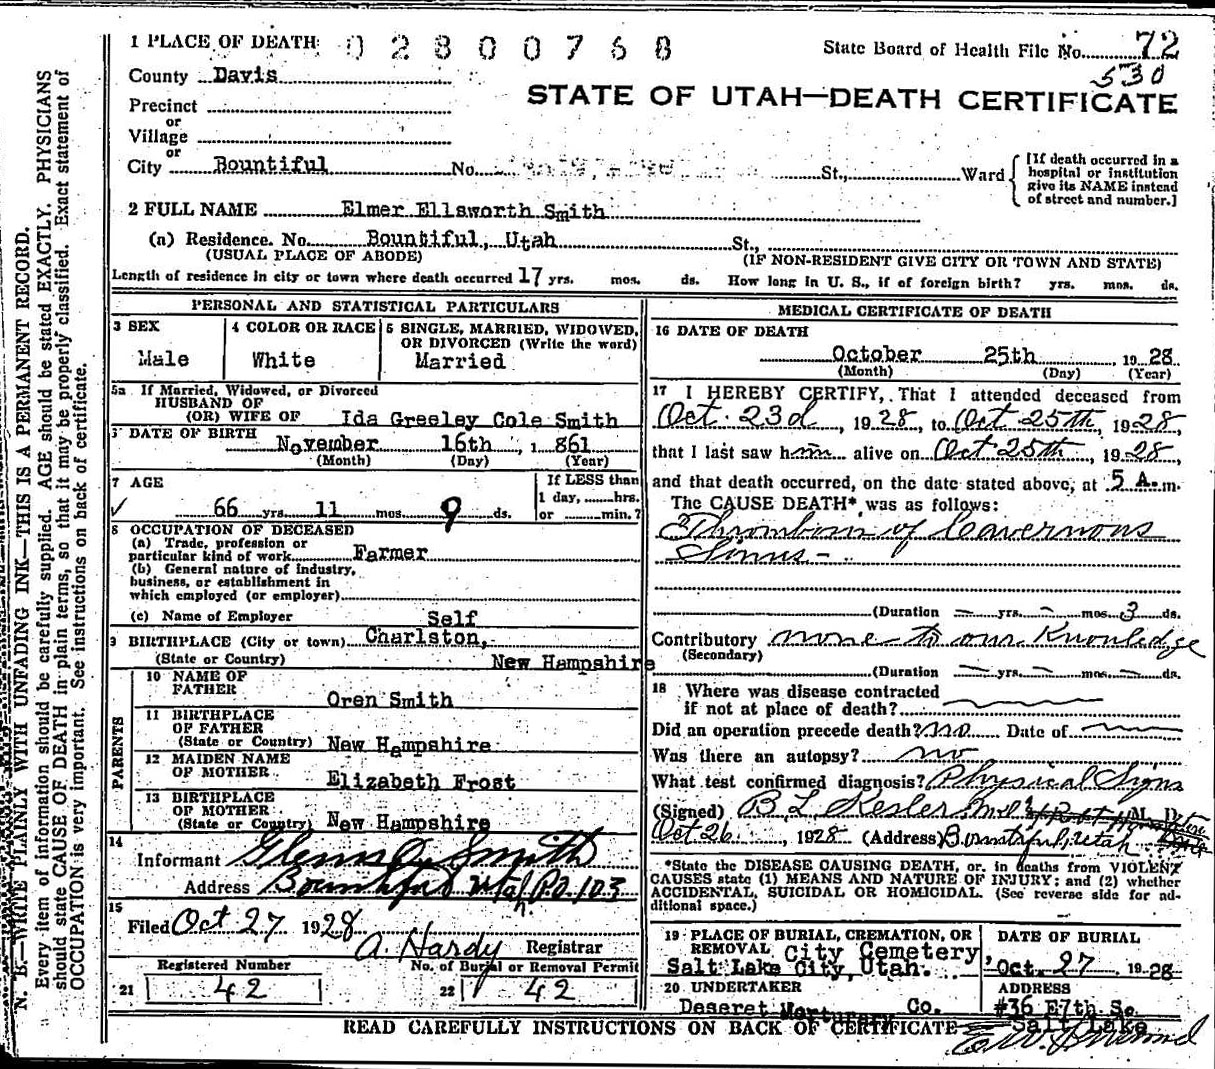 N. B.—WRITE PLAINLY WITH UNFADING INK—THIS IS A PERMANENT RECORD.
Every item of information should be carefully supplied. AGE should be stated EXACTLY. PHYSICIANS
should state CAUSE OF DEATH in plain terms, so that it may be properly classified. Exact statement of
OCCUPATION is very important. See instructions on back of certificate.
1 PLACE OF DEATH 02800768
State Board of Health File No. 72
530
County Davis
STATE OF UTAH—DEATH CERTIFICATE
Precinct
or
Village
or
City Bountiful No. St., Ward
[If death occurred in a
hospital or institution
give its NAME instead
of street and number.]
2 FULL NAME Elmer Ellsworth Smith
(a) Residence. No. Bountiful, Utah St.,
(USUAL PLACE OF ABODE) (IF NON-RESIDENT GIVE CITY OR TOWN AND STATE)
Length of residence in city or town where death occurred 17 yrs. mos. ds. How long in U. S., if of foreign birth? yrs. mos. ds.
PERSONAL AND STATISTICAL PARTICULARS
3 SEX
Male
4 COLOR OR RACE
White
5 SINGLE, MARRIED, WIDOWED,
OR DIVORCED (Write the word)
Married
5a If Married, Widowed, or Divorced
HUSBAND OF
(OR) WIFE OF Ida Greeley Cole Smith
DATE OF BIRTH
November 16th, 1861
(Month) (Day) (Year)
7 AGE
66 yrs. 11 mos. 9 ds.
If LESS than
1 day, hrs.
or min.?
8 OCCUPATION OF DECEASED
(a) Trade, profession or
particular kind of work Farmer
(b) General nature of industry,
business, or establishment in
which employed (or employer)
(c) Name of Employer Self
9 BIRTHPLACE (City or town) Charlston,
(State or Country) New Hampshire
PARENTS
10 NAME OF
FATHER Oren Smith
11 BIRTHPLACE
OF FATHER
(State or Country) New Hampshire
12 MAIDEN NAME
OF MOTHER Elizabeth Frost
13 BIRTHPLACE
OF MOTHER
(State or Country) New Hampshire
14
Informant Smith
Address Bountiful Utah P.O. 103
15
Filed Oct 27 1928
A. Hardy Registrar
Registered Number No. of Burial or Removal Permit
21 42 22 42
MEDICAL CERTIFICATE OF DEATH
16 DATE OF DEATH
October 25th, 1928
(Month) (Day) (Year)
17 I HEREBY CERTIFY, That I attended deceased from
Oct 23d, 1928, to Oct 25th, 1928,
that I last saw him alive on Oct 25th, 1928,
and that death occurred, on the date stated above, at 5 A. m.
The CAUSE DEATH*, was as follows:
Thrombosis of Cavernous
Sinus -
(Duration — yrs. — mos. 3 ds.
Contributory none to our Knowledge
(Secondary)
(Duration — yrs. — mos. — ds.
18 Where was disease contracted
if not at place of death?
Did an operation precede death? no Date of
Was there an autopsy? no
What test confirmed diagnosis? Physical Signs
(Signed) B L Kesler, M. D.
Oct 26 1928 (Address) Bountiful, Utah
*State the DISEASE CAUSING DEATH, or, in deaths from VIOLENT
CAUSES state (1) MEANS AND NATURE OF INJURY; and (2) whether
ACCIDENTAL, SUICIDAL OR HOMICIDAL. (See reverse side for ad-
ditional space.)
19 PLACE OF BURIAL, CREMATION, OR
REMOVAL City Cemetery,
Salt Lake City, Utah.
DATE OF BURIAL
Oct. 27 1928
20 UNDERTAKER
Deseret Mortuary Co.
ADDRESS
#36 E 7th So.
Salt Lake
READ CAREFULLY INSTRUCTIONS ON BACK OF CERTIFICATE